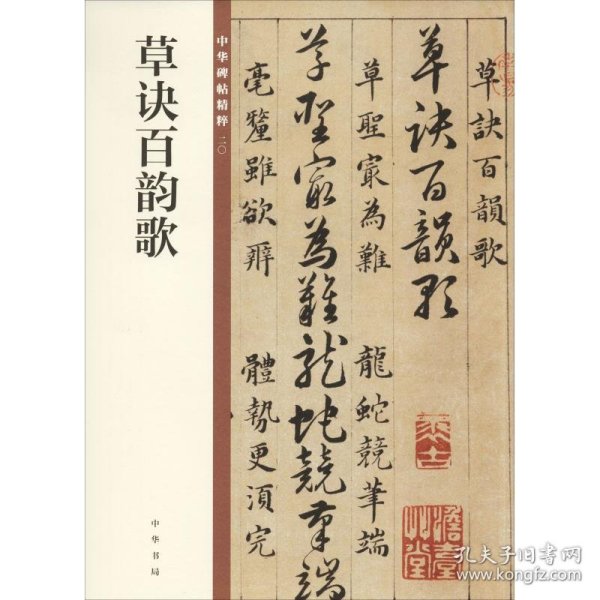 草诀百韵歌
中华碑帖精粹 二〇
中华书局
草訣百韻歌
草诀百韻歌
草聖㝡為難 龍蛇競筆端
草聖㝡為難龍蛇競筆端
毫釐雖欲辨 體勢更須完
孔夫子旧书网
www.kongfz.com